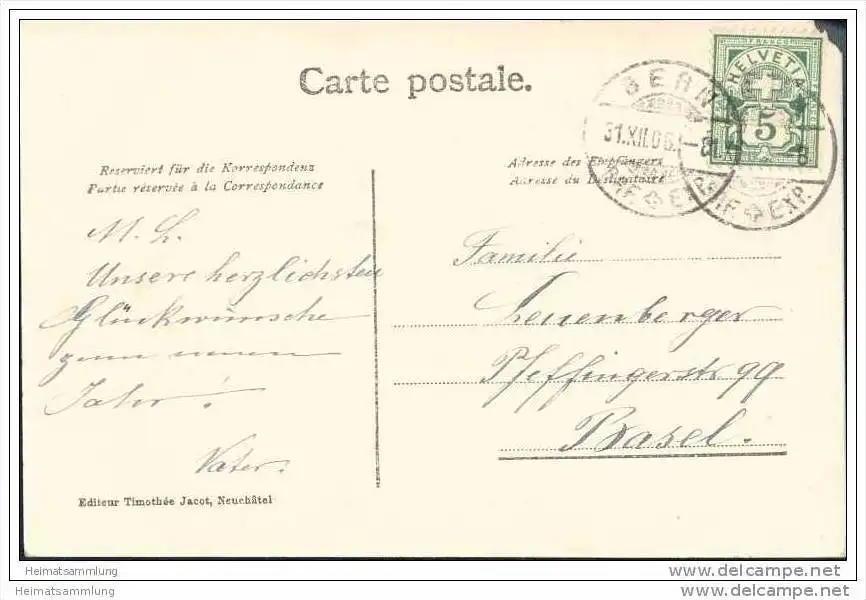 Carte postale.
FRANCO
HELVETIA
5
BERN
31.XII.06.
BRIEF EXP.
Reserviert für die Korrespondenz
Partie réservée à la Correspondance
Adresse des Empfängers
Adresse du Destinataire
M. L.
Unsere herzlichsten
Glückwünsche
zum neuen
Jahr!
Vater.
Familie
Leuenberger
Pfeffingerstr 99
Basel.
Editeur Timothée Jacot, Neuchâtel
Heimatsammlung
Heimatsammlung
www.delcampe.net
www.delcampe.net